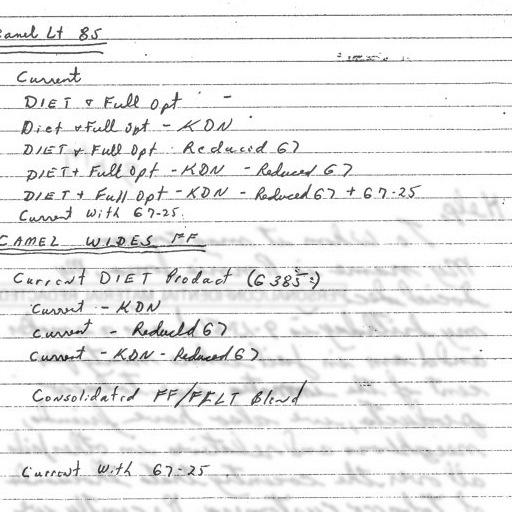 Camel Lt 85
Current
DIET & Full Opt -
Diet & Full Opt - KDN
DIET & Full Opt Reduced G7
DIET + Full Opt - KDN - Reduced G7
DIET + Full Opt - KDN - Reduced G7 + G7-25
Current With G7-25.
CAMEL WIDES FF
Current DIET Product (G385:)
Current - KDN
Current - Reduced G7
Current - KDN - Reduced G7
Consolidated FF/FFLT Blend
Current With G7-25